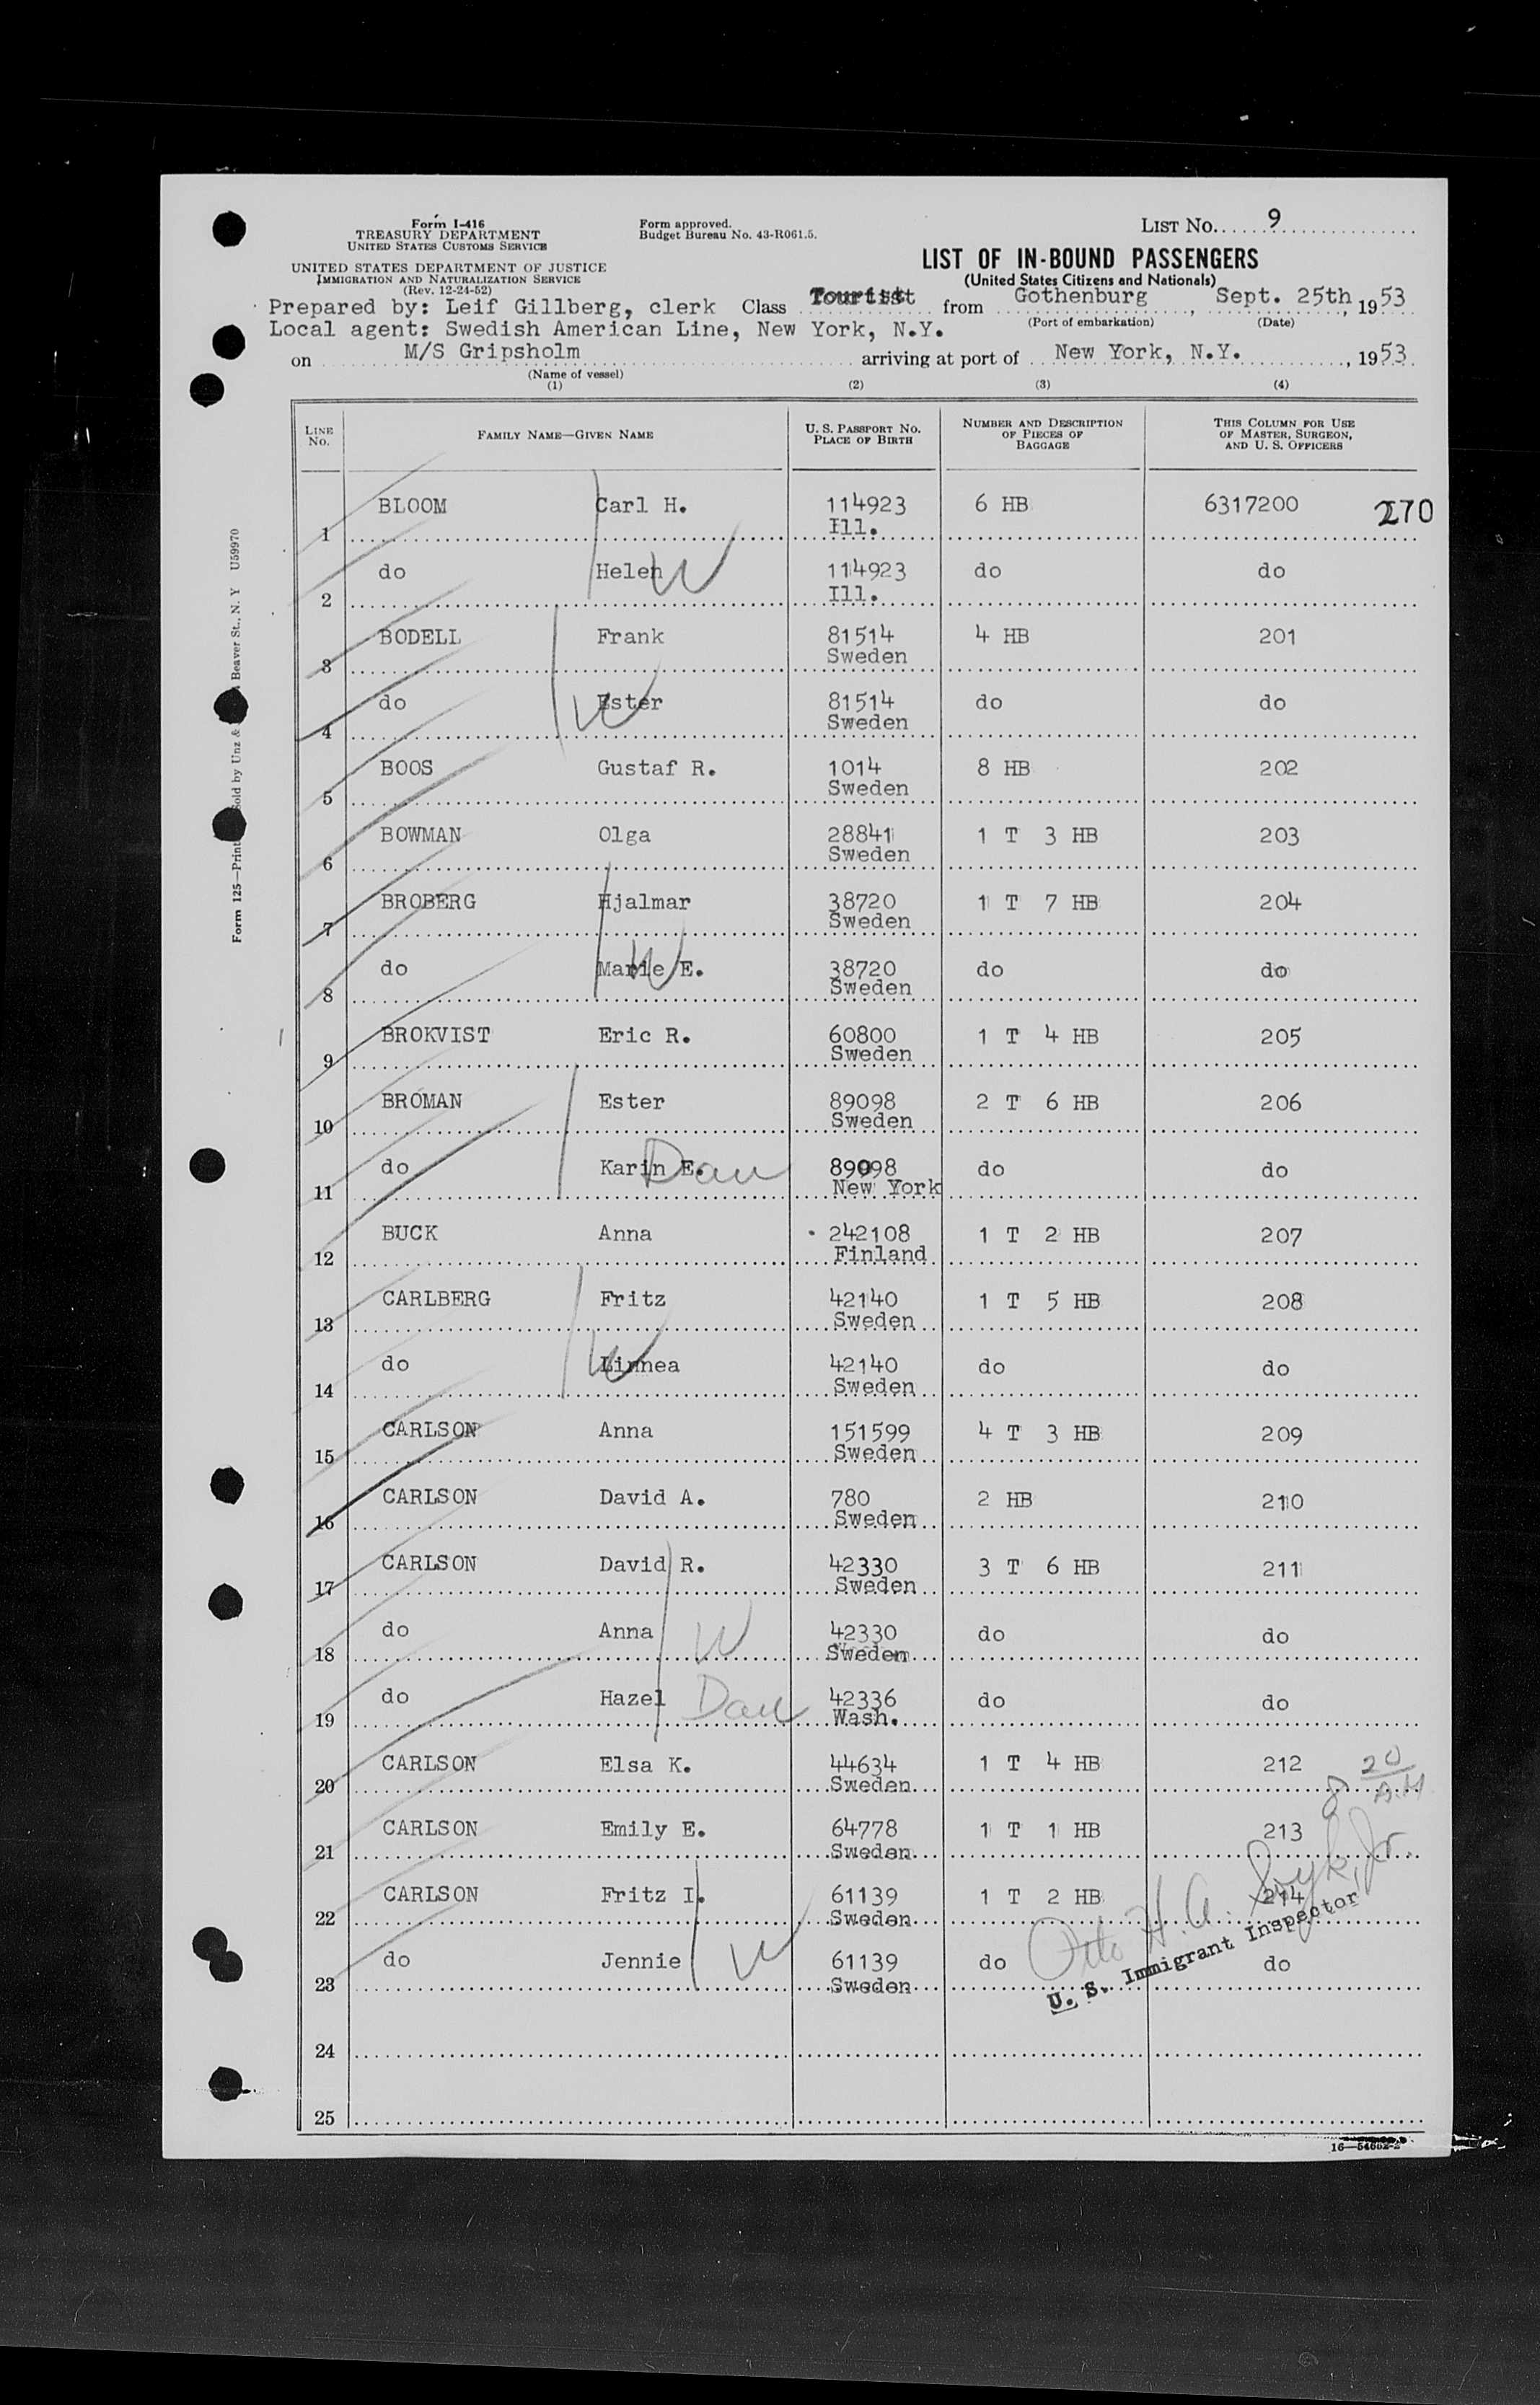 Form I-416
TREASURY DEPARTMENT
UNITED STATES CUSTOMS SERVICE
Form approved.
Budget Bureau No. 43-R061.5.
LIST No. 9
UNITED STATES DEPARTMENT OF JUSTICE
IMMIGRATION AND NATURALIZATION SERVICE
(Rev. 12-24-52)
LIST OF IN-BOUND PASSENGERS
(United States Citizens and Nationals)
Prepared by: Leif Gillberg, clerk Class Tourist from Gothenburg, Sept. 25th, 1953
(Port of embarkation) (Date)
Local agent: Swedish American Line, New York, N.Y.
on M/S Gripsholm arriving at port of New York, N.Y., 1953
(Name of vessel)
(1) (2) (3) (4)
LINE No. FAMILY NAME—GIVEN NAME U. S. PASSPORT No. PLACE OF BIRTH NUMBER AND DESCRIPTION OF PIECES OF BAGGAGE THIS COLUMN FOR USE OF MASTER, SURGEON, AND U. S. OFFICERS
1 BLOOM Carl H. 114923 6 HB 6317200 270
Ill.
2 do Helen W 114923 do do
Ill.
3 BODELL Frank 81514 4 HB 201
Sweden
4 do Ester W 81514 do do
Sweden
5 BOOS Gustaf R. 1014 8 HB 202
Sweden
6 BOWMAN Olga 28841 1 T 3 HB 203
Sweden
7 BROBERG Hjalmar 38720 1 T 7 HB 204
Sweden
8 do Marie E. W 38720 do do
Sweden
9 BROKVIST Eric R. 60800 1 T 4 HB 205
Sweden
10 BROMAN Ester 89098 2 T 6 HB 206
Sweden
11 do Karin E. Dau 89098 do do
New York
12 BUCK Anna 242108 1 T 2 HB 207
Finland
13 CARLBERG Fritz 42140 1 T 5 HB 208
Sweden
14 do Linnea W 42140 do do
Sweden
15 CARLSON Anna 151599 4 T 3 HB 209
Sweden
16 CARLSON David A. 780 2 HB 210
Sweden
17 CARLSON David R. 42330 3 T 6 HB 211
Sweden
18 do Anna W 42330 do do
Sweden
19 do Hazel Dau 42336 do do
Wash.
20 CARLSON Elsa K. 44634 1 T 4 HB 212
Sweden
20
A.M
21 CARLSON Emily E. 64778 1 T 1 HB 213
Sweden
22 CARLSON Fritz I. 61139 1 T 2 HB 214
Sweden
23 do Jennie W 61139 do do
Sweden
Otto H. A. Jr.
U. S. Immigrant Inspector
24
25
Form 125—Print sold by Unz & Beaver St., N. Y U59970